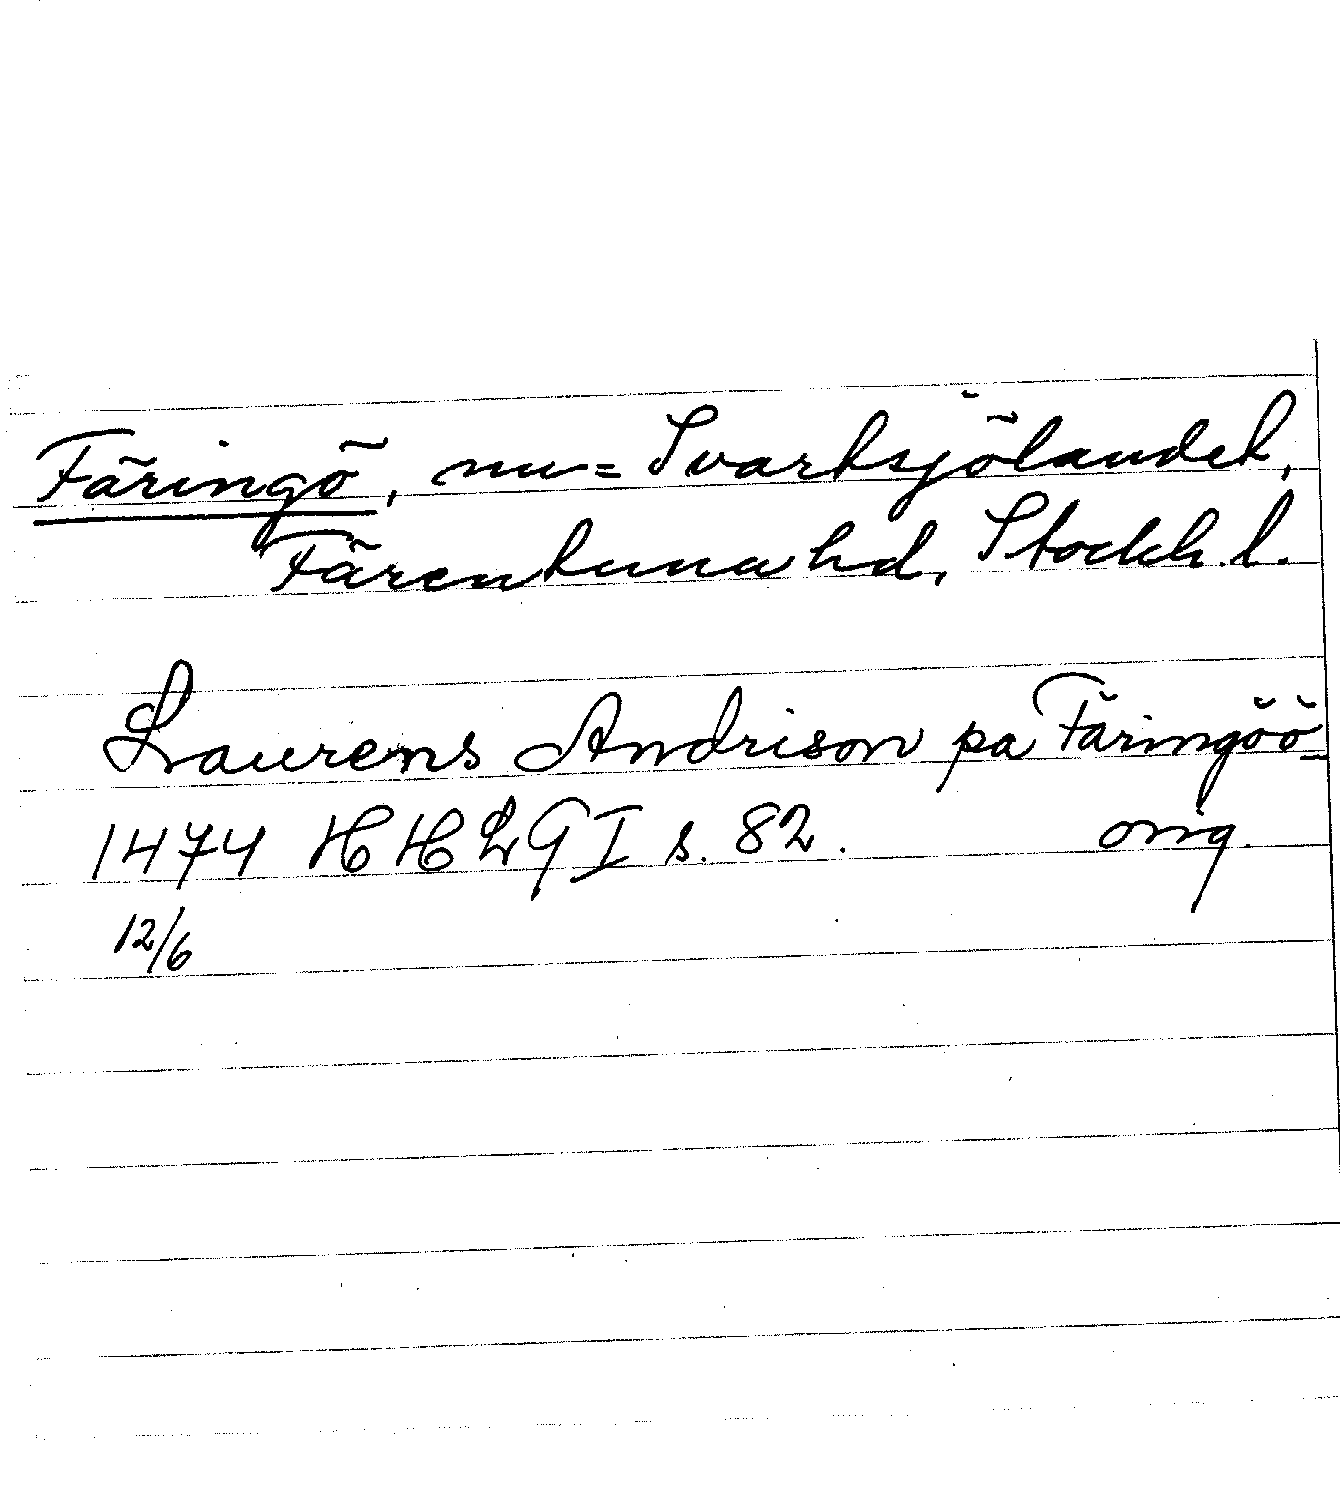 Färingö, nu = Svartsjölandet,
Färentuna hd, Stockh. l.
Laurens Andrison pa Färingöö
1474 HHLG I s. 82. orig.
12/6